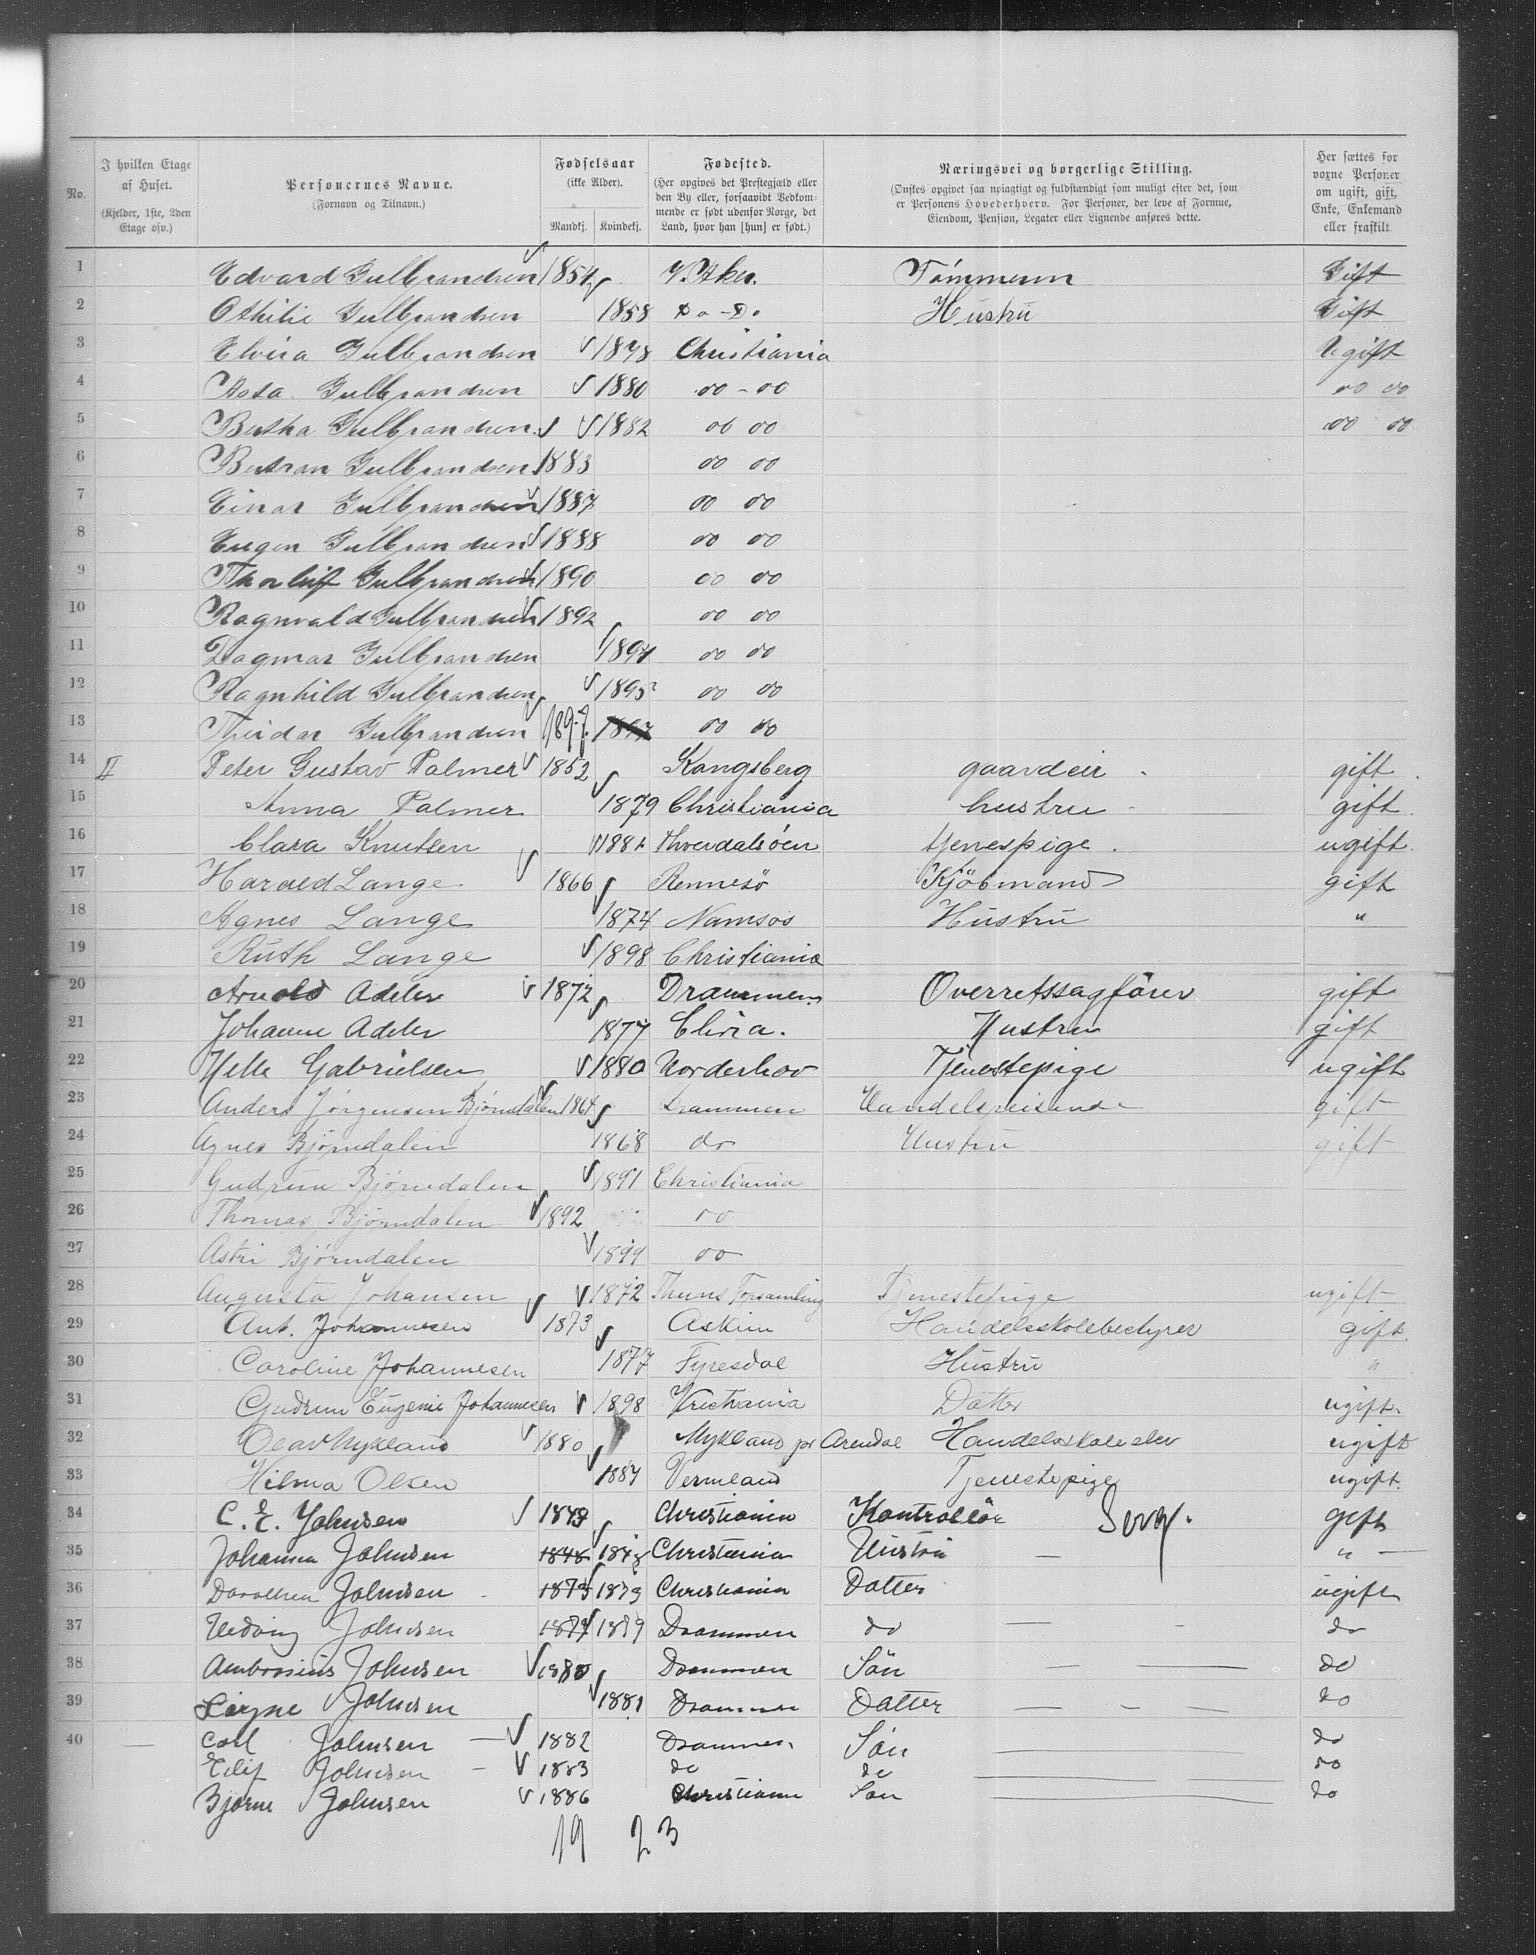 No.
I hvilken Etage af Huset. (Kjelder, 1ste, 2den Etage osv.)
Personernes Navne. (Fornavn og Tilnavn.)
Fødselsaar (ikke Alder). Mandkj. Kvindekj.
Fødested. (Her opgives det Prestegjæld eller den By eller, forsaavidt Vedkommende er født udenfor Norge, det Land, hvor han [hun] er født.)
Næringsvei og borgerlige Stilling. (Ønskes opgivet saa nøiagtigt og fuldstændigt som muligt efter det, som er Personens Hovederhverv. For Personer, der leve af Formue, Eiendom, Pension, Legater eller Lignende anføres dette.
Her sættes for voxne Personer om ugift, gift, Enke, Enkemand eller fraskilt
1 Edvard Gulbrandsen 1854 V. Aker. Tømmerm Gift
2 Othilie Gulbrandsen 1858 Do-Do Hustru Gift
3 Elvira Gulbrandsen 1878 Christiania Ugift
4 Asta Gulbrandsen 1880 do-do do do
5 Bertha Gulbrandsen 1882 do do do do
6 Bertran Gulbrandsen 1883 do do
7 Einar Gulbrandsen 1887 do do
8 Eugen Gulbrandsen 1888 do do
9 Thorleif Gulbrandsen 1890 do do
10 Ragnvald Gulbrandsen 1892 do do
11 Dagmar Gulbrandsen 1894 do do
12 Ragnhild Gulbrandsen 1895 do do
13 Theidar Gulbrandsen 1897. 1897 do do
14 II Peter Gustav Palmer 1852 Kongsberg gaardeir gift
15 Anna Palmer 1879 Christiania hustru gift
16 Clara Knutsen Thverdalsöen tjenespige ugift
17 Harald Lange 1866 Rennesö Kjöbmand gift
18 Agnes Lange 1874 Namsos Hustru "
19 Ruth Lange 1898 Christiania
20 Arnold Adeler 1872 Drammen Overretssagförer gift
21 Johanne Adeler 1877 Chria. Hustru gift
22 Helle Gabrielsen 1880 Norderhov Tjenestepige ugift
23 Anders Jørgensen Bjørndalen 1864 Drammen Handelsreisende gift
24 Agnes Bjørndalen 1868 do Hustru gift
25 Gudrun Bjørndalen 1891 Christiania
26 Thomas Bjørndalen 1892 do
27 Astri Bjørndalen 1899 do
28 Augusta Johansen 1872 Thuns Forsamling Tjenestepige ugift
29 Ant. Johannesen 1873 Askim Handelsskolebestyrer gift
30 Caroline Johannesen 1877 Fyresdal Hustru "
31 Gudrun Eugenie Johannesen 1898 Kristiania Datter ugift.
32 Olav Mykland 1880 Mykland pr Arendal Handelsskoleelev ugift
33 Hilma Olsen 1884 Vermland Tjenestepige ugift.
34 C. E. Johnsen 1849 Christiania Kontrollör gift
35 Johanna Johnsen 1848 1848 Christiania Hustru "
36 Dorothea Johnsen 1873 1873 Christiania Datter ugift
37 Hedvig Johnsen 1879 1879 Drammen do do
38 Ambrosius Johnsen 1880 Drammen Sön do
39 Signe Johnsen 1881 Drammen Datter do
40 Carl Johnsen 1882 Drammen Sön do
Eilif Johnsen 1883 do do do
Bjarne Johnsen 1886 Christiania Sön do
19 23